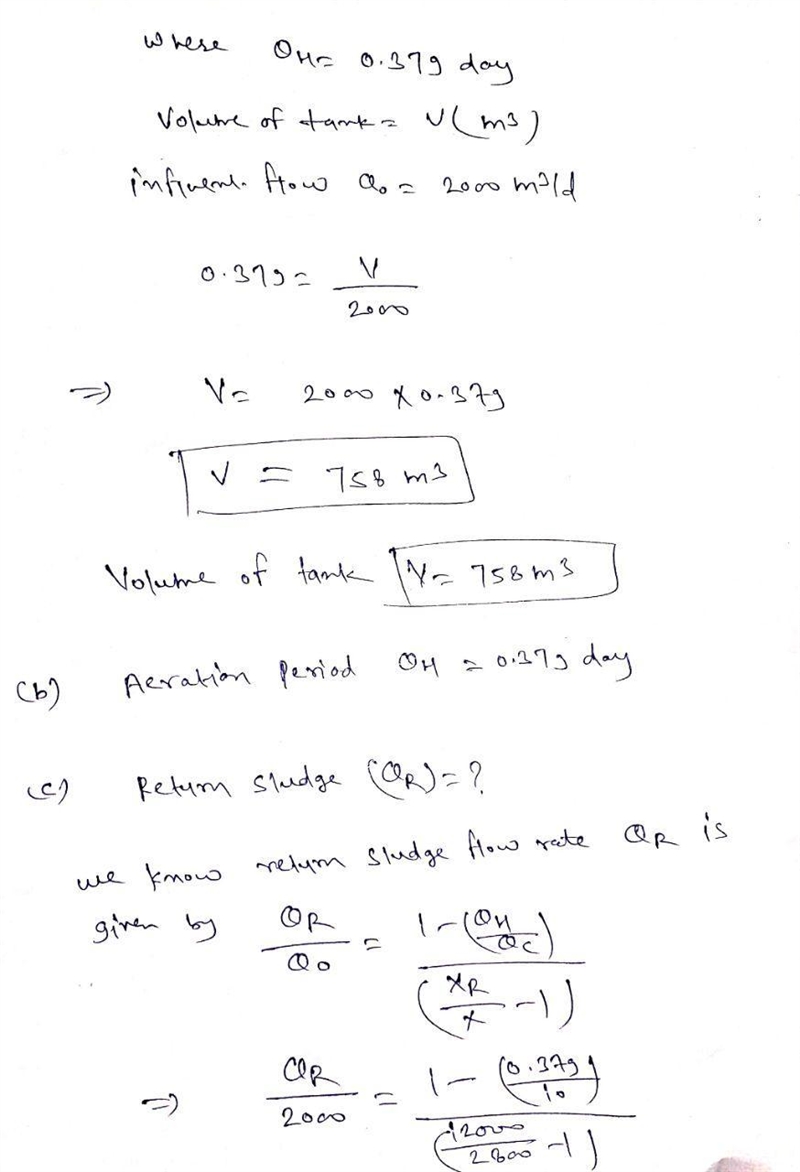 where θH = 0.379 day
Volume of tank = V(m3)
influent flow Qo = 2000 m3/d
0.379 = V / 2000
=) V = 2000 x 0.379
V = 758 m3
Volume of tank V = 758 m3
(b) Aeration Period θH = 0.379 day
(c) Return Sludge (QR) = ?
we know return sludge flow rate QR is
given by QR / Qo = 1 - (θH / θc) / (XR / X - 1)
=) QR / 2000 = 1 - (0.379 / 10) / (12000 / 2800 - 1)